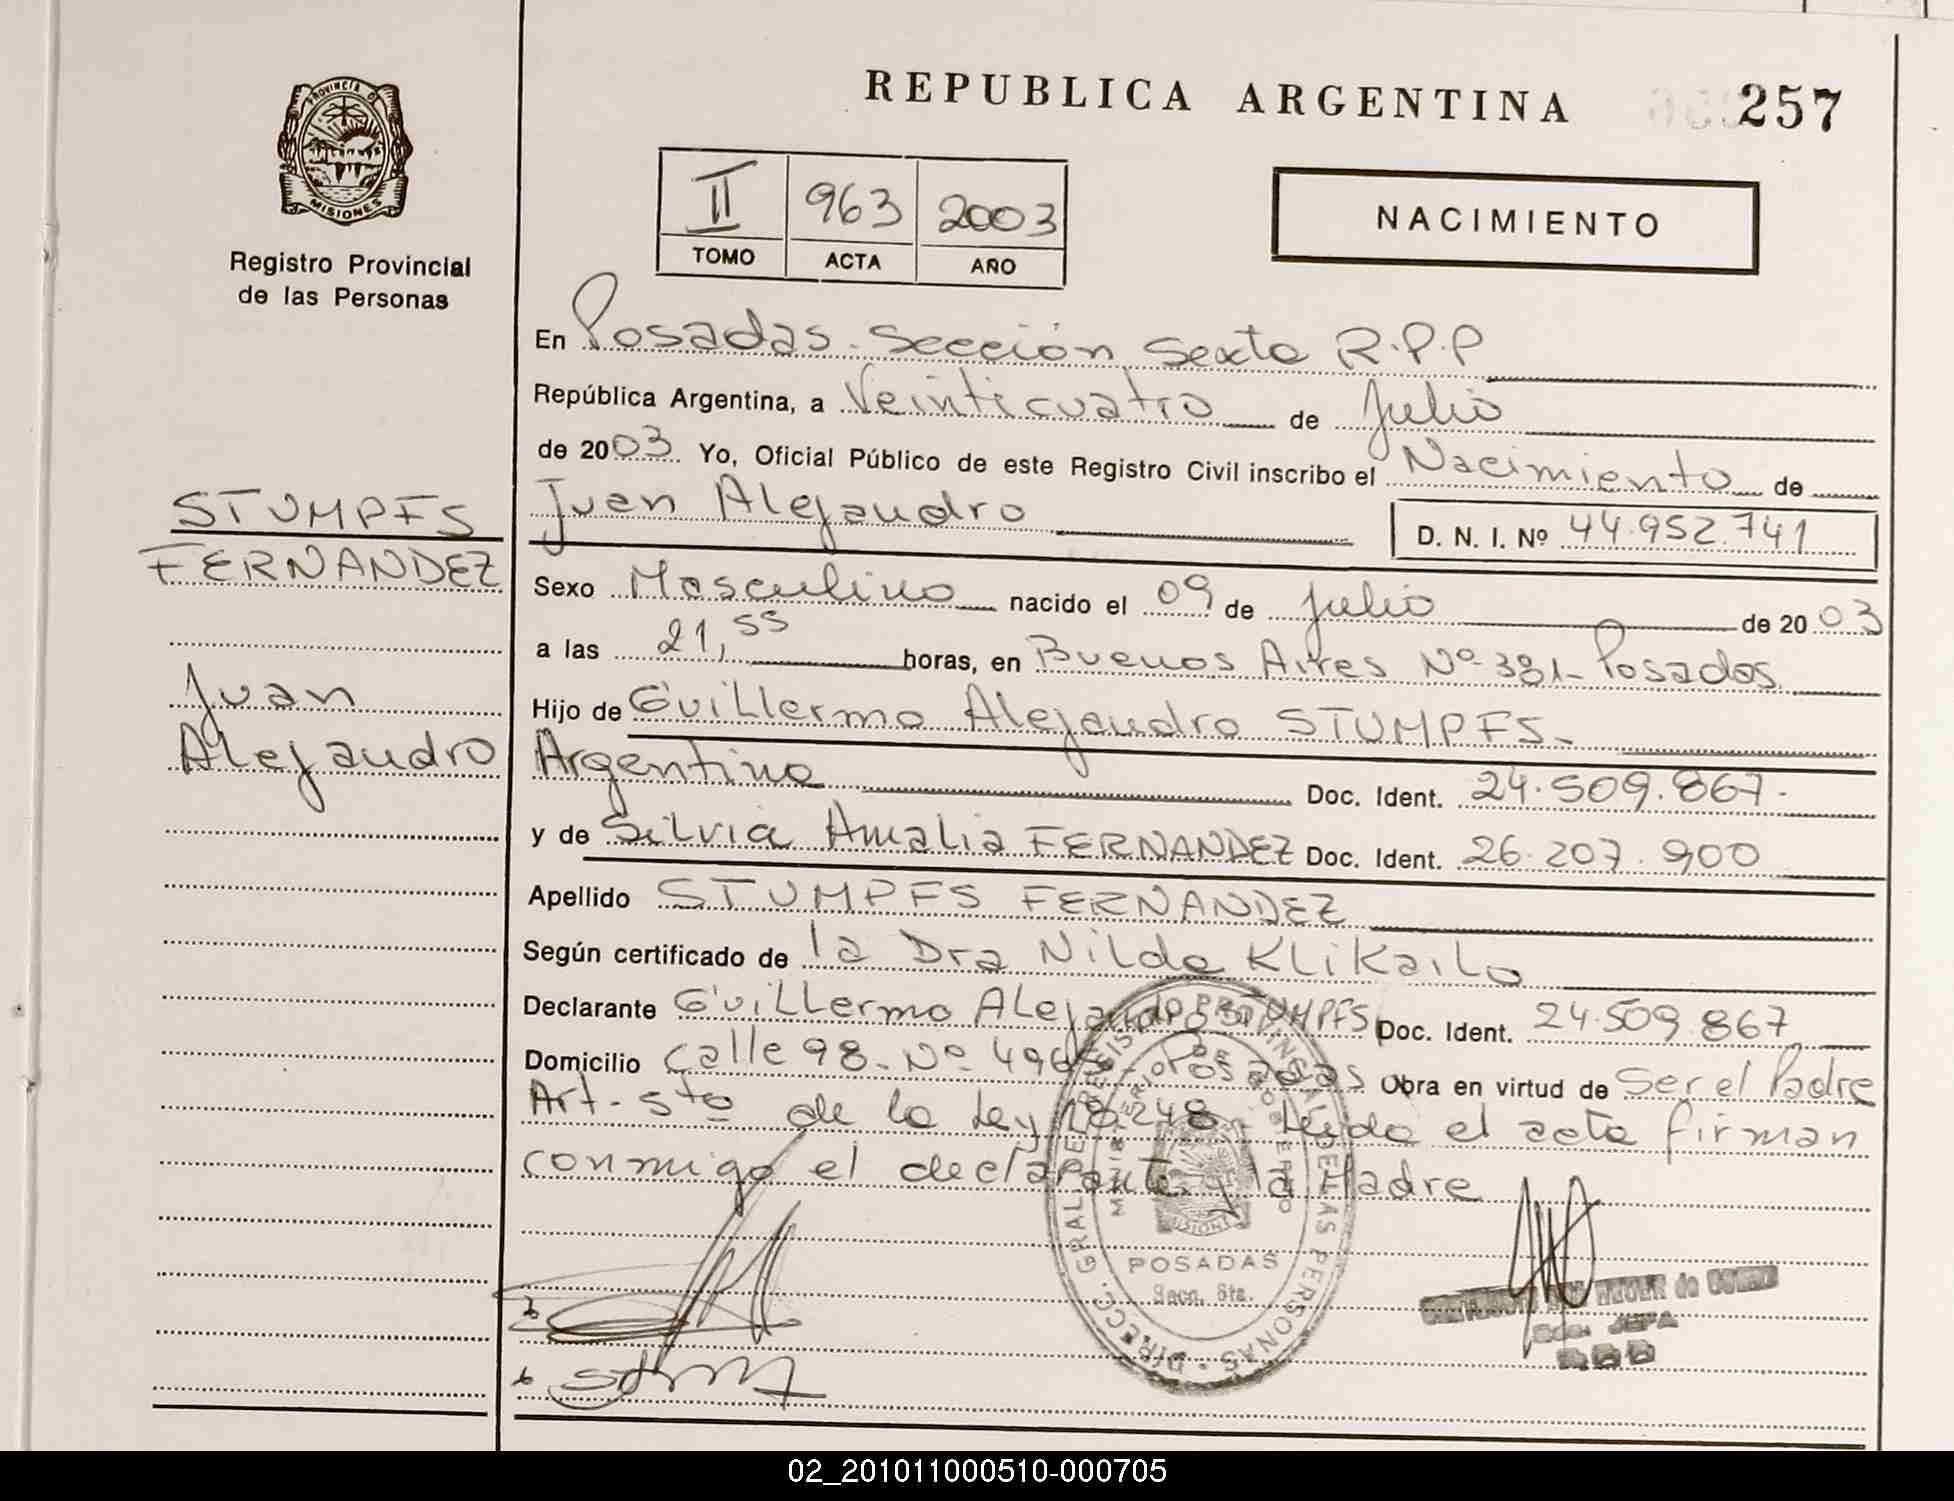 REPUBLICA ARGENTINA
257
PROVINCIA DE
MISIONES
Registro Provincial
de las Personas
II 963 2003
TOMO ACTA AÑO
NACIMIENTO
En Posadas. Sección Sexta R.P.P
República Argentina, a Veinticuatro de Julio
de 2003. Yo, Oficial Público de este Registro Civil inscribo el Nacimiento de
Juan Alejandro
D. N. I. Nº 44.952.741
STUMPFS
FERNANDEZ
Juan
Alejandro
Sexo Masculino nacido el 09 de Julio de 2003
a las 21,55 horas, en Buenos Aires Nº 381- Posadas
Hijo de Guillermo Alejandro STUMPFS-
Argentino Doc. Ident. 24.509.867.
y de Silvia Amalia FERNANDEZ Doc. Ident. 26.207.900
Apellido STUMPFS FERNANDEZ
Según certificado de la Dra Nilda Klikailo
Declarante Guillermo Alejandro STUMPFS Doc. Ident. 24.509.867
Domicilio Calle 98- Nº Posadas Obra en virtud de Ser el Padre
Art- 5to de la Ley 18.248. Leída el acta firman
conmigo el declarante y la Madre
DIRECC. GRAL. DE REGISTRO PROVINCIAL DE LAS PERSONAS
MINISTERIO DE GOBIERNO
MISIONES
POSADAS
Secc. 6ta.
JEFA
02_201011000510-000705